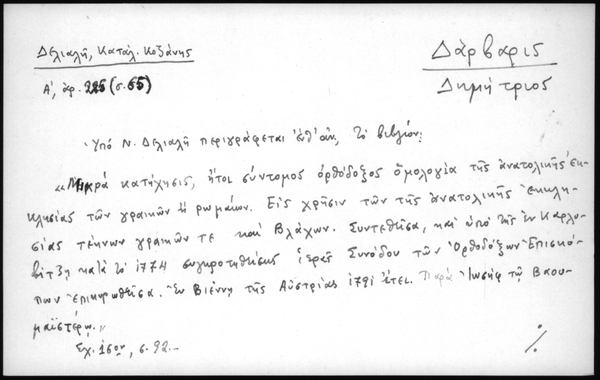 Δελιαλῆ, Κατάλ. Κοζάνης
Α', ἀρ. 225 (σ. 55)
Δάρβαρις
Δημήτριος
Ὑπό Ν. Δελιαλῆ περιγράφεται ἐνθ' ἀν, τό βιβλίον:
«Μικρά κατήχησις, ἤτοι σύντομος ὀρθόδοξος ὁμολογία τῆς ἀνατολικῆς ἐκ-
κλησίας τῶν γραικῶν ἤ ρωμαίων. Εἰς χρῆσιν τῶν τῆς ἀνατολικῆς ἐκκλη-
σίας τέκνων γραικῶν τε καί Βλάχων. Συντεθεῖσα, καί ὑπό τῆς ἐν Καρλο-
βίτζῃ κατά τό 1774 συγκροτηθείσης ἱερᾶς Συνόδου τῶν Ὀρθοδόξων Ἐπισκό-
πων ἐπικυρωθεῖσα. Ἐν Βιέννῃ τῆς Αὐστρίας 1791 ἔτει. Παρά Ἰωσήφ τῷ Βαου-
μαϊστέρῳ.»
Σχ. 16ον, σ. 92.-
./.